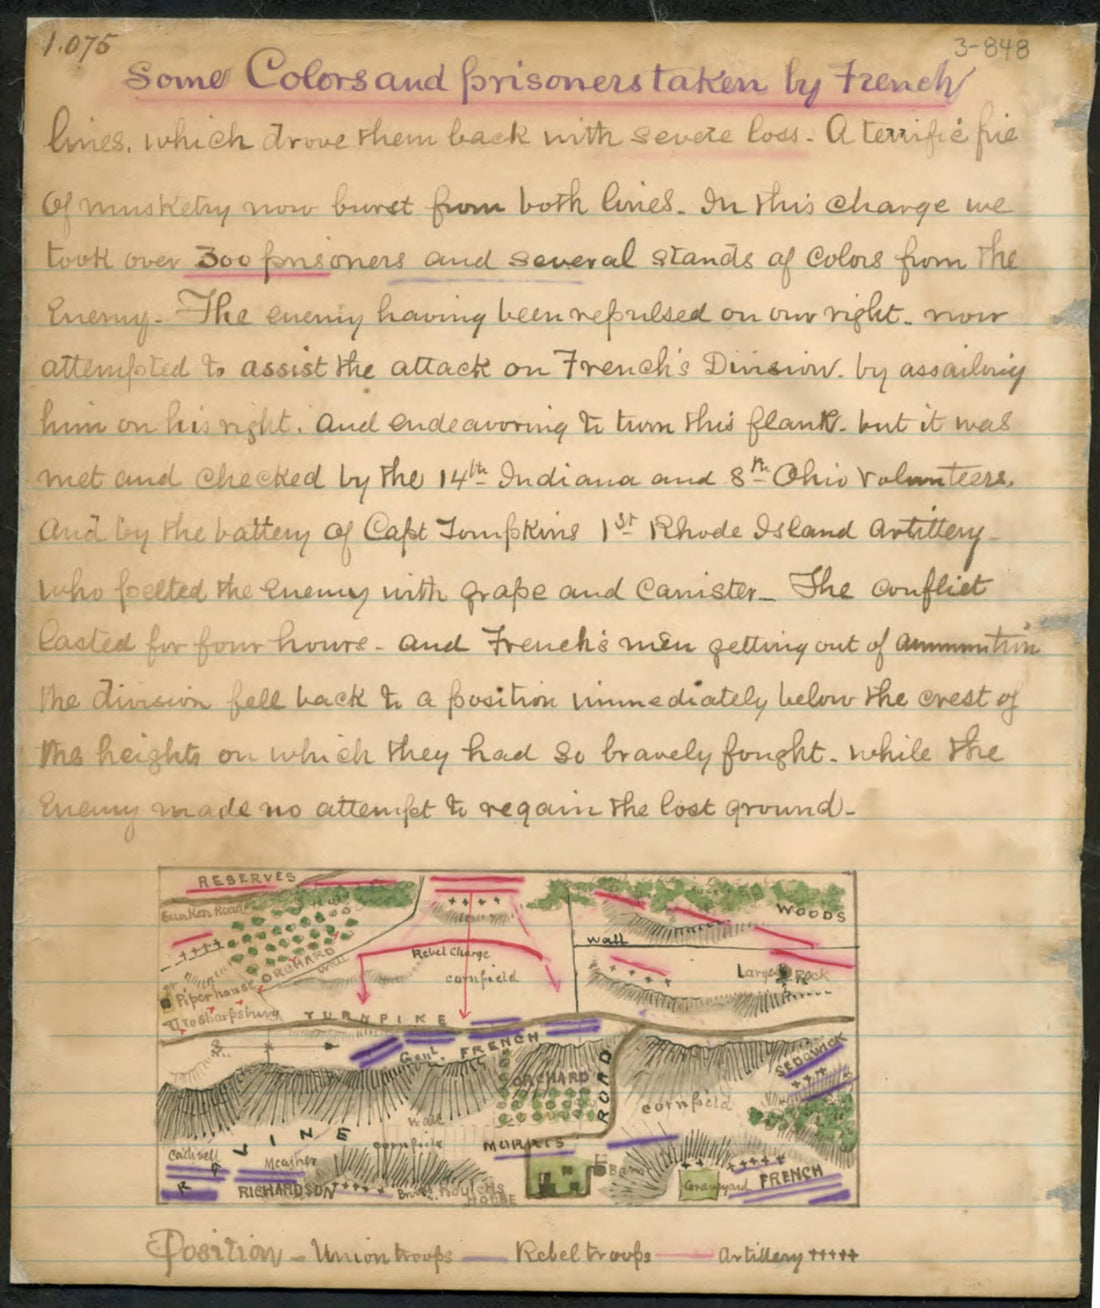 1.075
3-848
Some Colors and prisoners taken by French
lines, which drove them back with severe loss. A terrific fire
of musketry now burst from both lines. In this charge we
took over 300 prisoners and several stands of colors from the
Enemy. The enemy having been repulsed on our right. now
attempted to assist the attack on French's Division. by assailing
him on his right. and endeavoring to turn this flank. but it was
met and checked by the 14th Indiana and 8th Ohio Volunteers.
and by the battery of Capt Tompkins 1st Rhode Island Artillery.
who pelted the Enemy with grape and canister_ The conflict
lasted for four hours. and French's men getting out of ammunition
the division fell back to a position immediately below the crest of
the heights on which they had so bravely fought. while the
Enemy made no attempt to regain the lost ground_
RESERVES
Sunken Road
WOODS
wall
ORCHARD
wall
Rebel Charge
cornfield
Large Rock
Piper house
To Sharpsburg
TURNPIKE
Genl. FRENCH
SEDGWICK
ORCHARD
ROAD
cornfield
wall
LINE
cornfield
MORRIS
Caldwell
Meagher
Barn
RICHARDSON
HOUSE
Graveyard
FRENCH
Position _ Union troops
Rebel troops
Artillery +++++